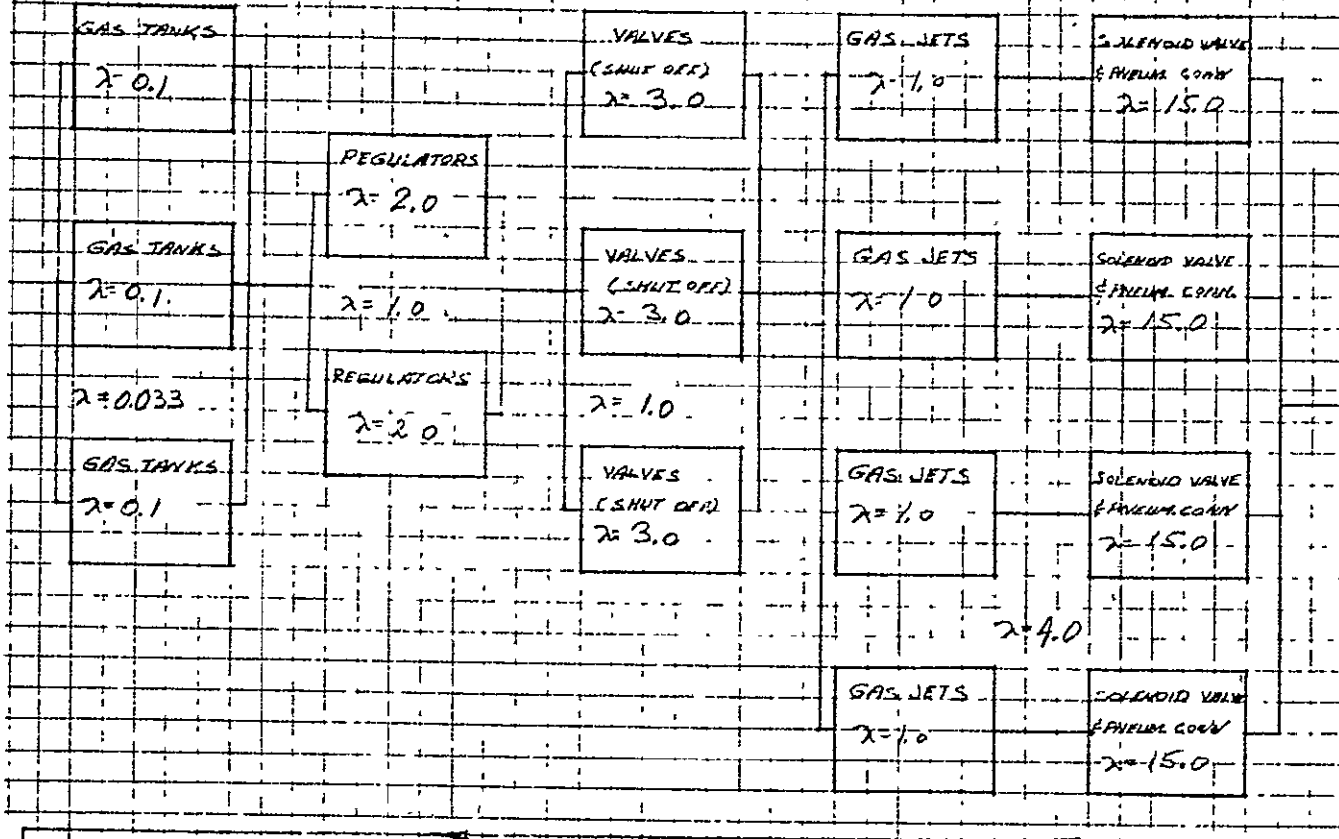 GAS TANKS
λ= 0.1
GAS TANKS
λ= 0.1.
λ=0.033
GAS TANKS
λ=0.1
REGULATORS
λ= 2.0
λ= 1.0
REGULATORS
λ= 2.0
VALVES
(SHUT OFF)
λ= 3.0
VALVES
(SHUT OFF)
λ= 3.0
λ= 1.0
VALVES
(SHUT OFF)
λ= 3.0
GAS JETS
λ= 1.0
GAS JETS
λ= 1.0
GAS JETS
λ= 1.0
GAS JETS
λ= 1.0
λ= 4.0
SOLENOID VALVE
& PNEUM. CONN
λ= 15.0
SOLENOID VALVE
& PNEUM. CONN.
λ= 15.0
SOLENOID VALVE
& PNEUM. CONN
λ= 15.0
SOLENOID VALVE
& PNEUM. CONN
λ= 15.0